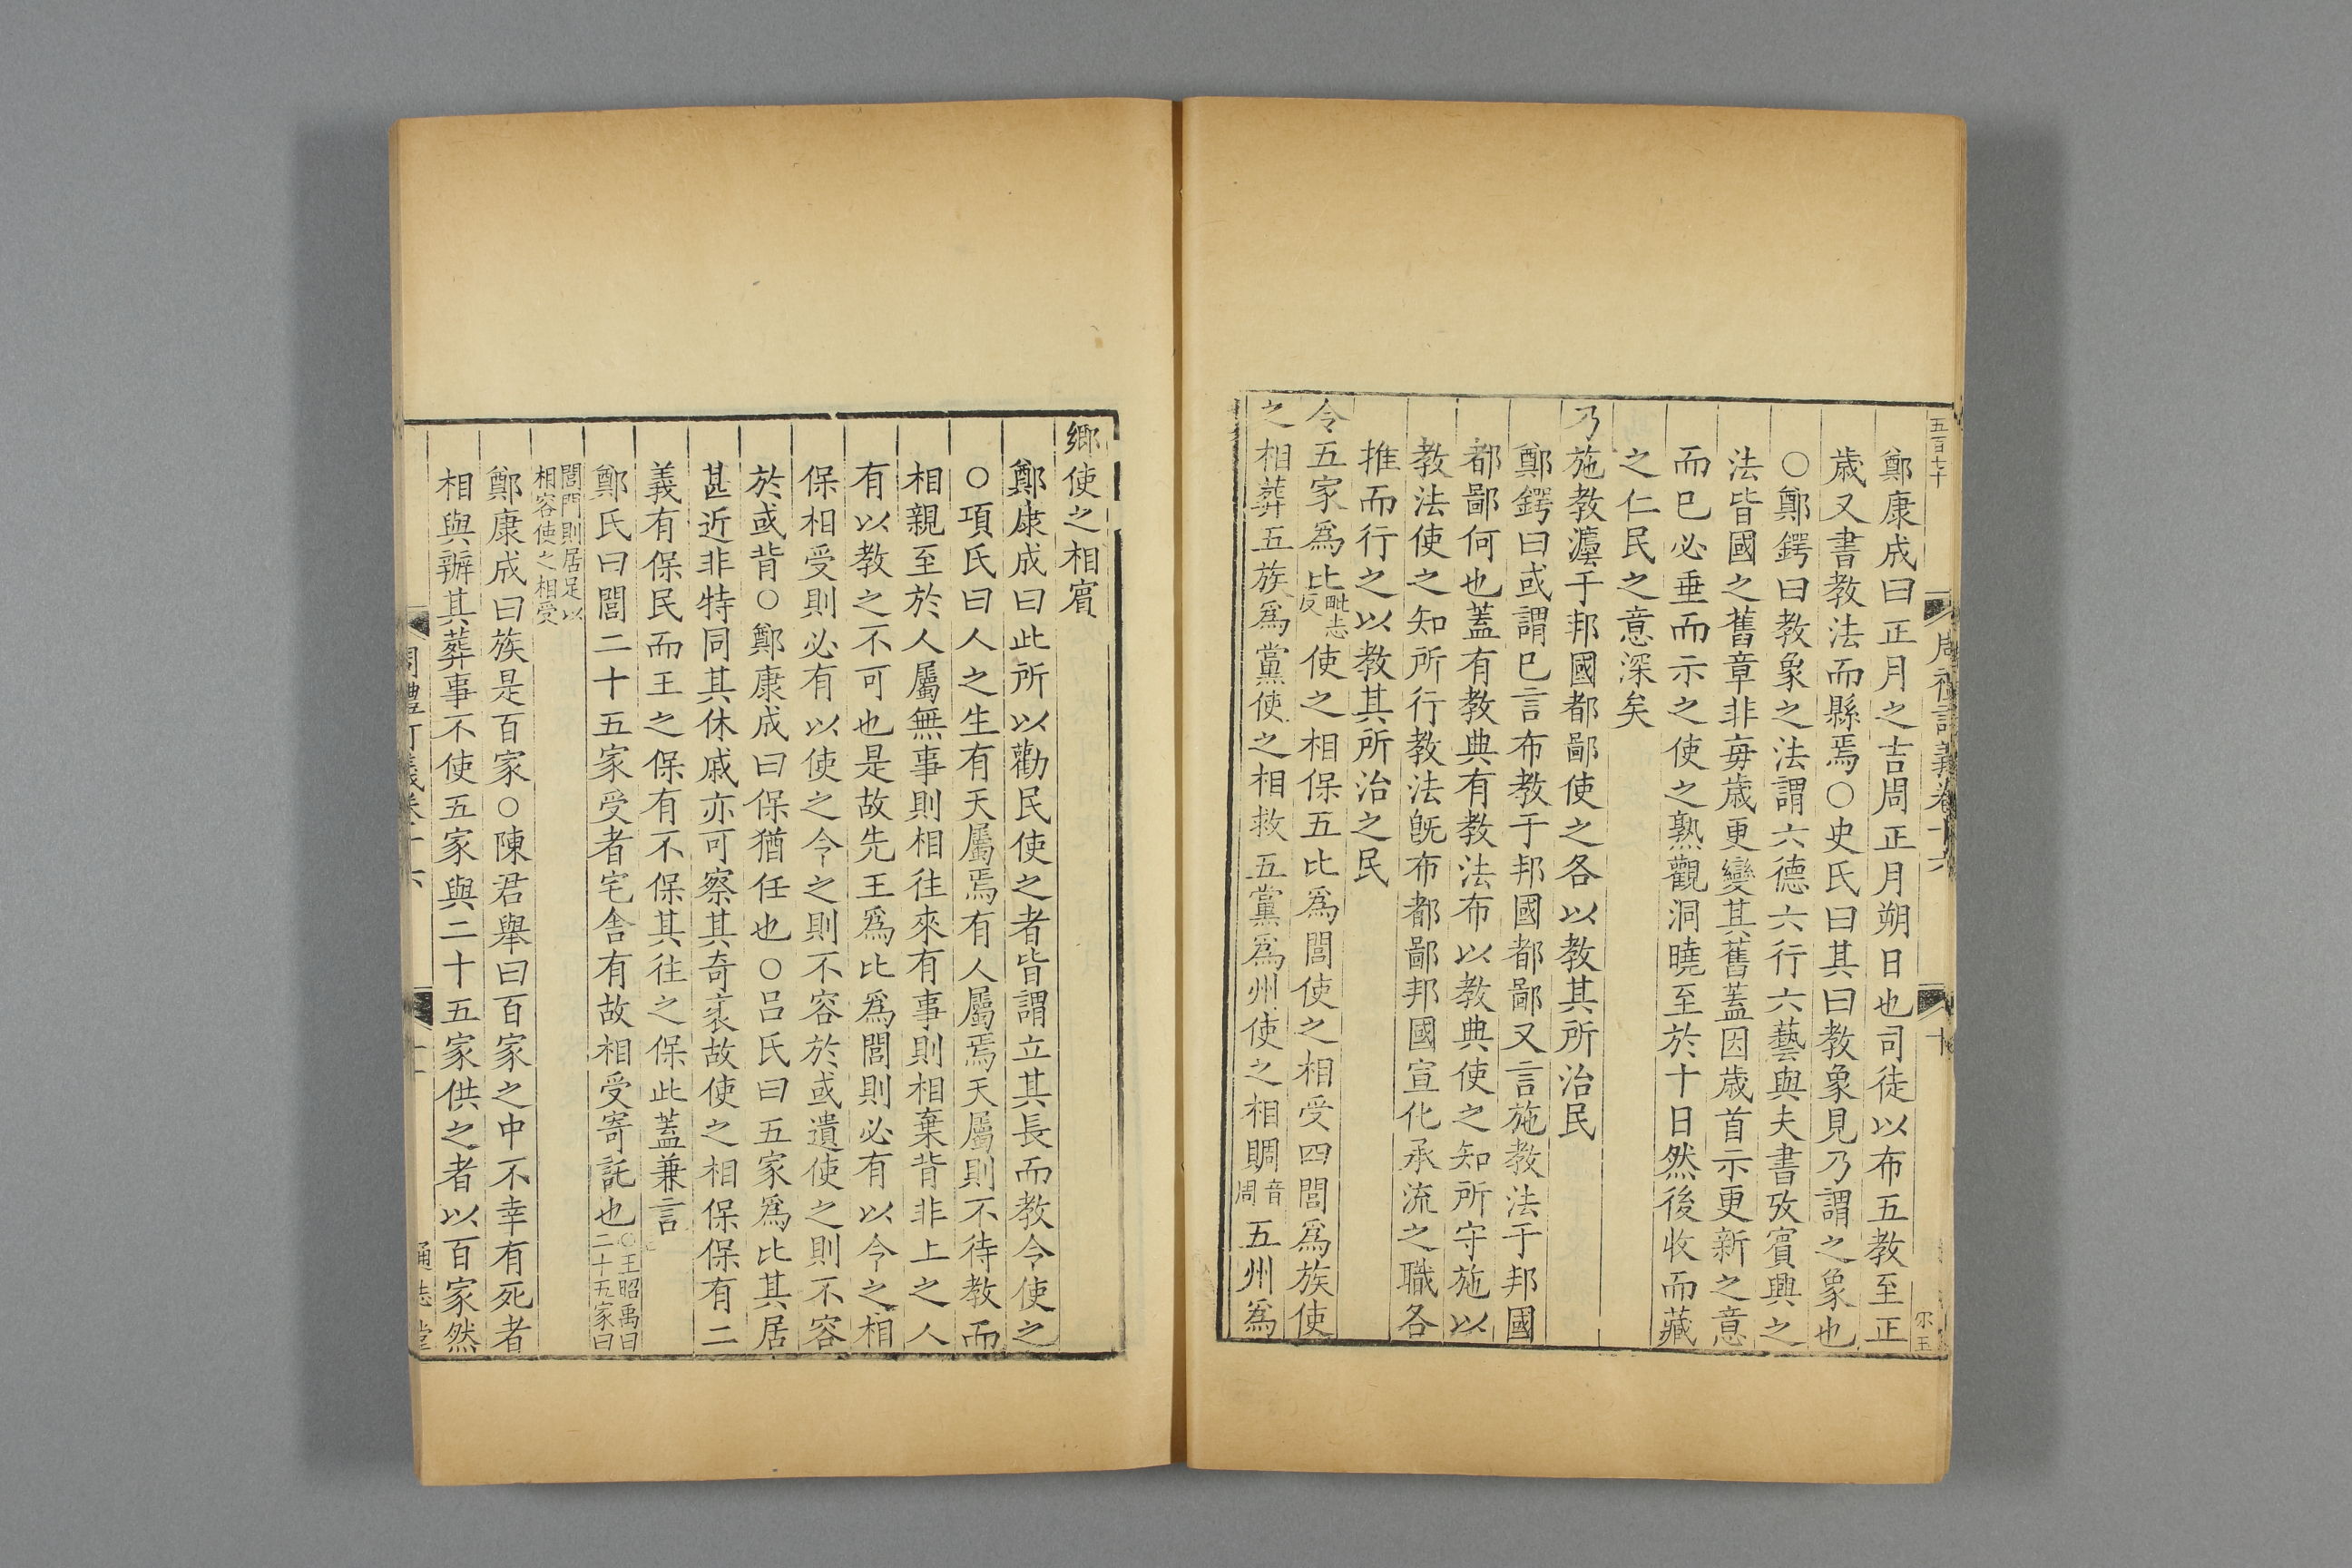 五百七十
周禮訂義卷十六
十
鄭康成曰正月之吉周正月朔日也司徒以布五教至正
歲又書教法而縣焉○史氏曰其曰教象見乃謂之象也
○鄭鍔曰教象之法謂六德六行六藝與夫書攷賓興之
法皆國之舊章非每歲更變其舊蓋因歲首示更新之意
而已必垂而示之使之熟觀洞曉至於十日然後收而藏
之仁民之意深矣
乃施教灋于邦國都鄙使之各以教其所治民
鄭鍔曰或謂已言布教于邦國都鄙又言施教法于邦國
都鄙何也蓋有教典有教法布以教典使之知所守施以
教法使之知所行教法旣布都鄙邦國宣化承流之職各
推而行之以教其所治之民
令五家爲比毗志反使之相保五比爲閭使之相受四閭爲族使
之相葬五族爲黨使之相救五黨爲州使之相賙音周五州爲
鄉使之相賓
鄭康成曰此所以勸民使之者皆謂立其長而教令使之
○項氏曰人之生有天屬焉有人屬焉天屬則不待教而
相親至於人屬無事則相往來有事則相棄背非上之人
有以教之不可也是故先王爲比爲閭則必有以令之相
保相受則必有以使之令之則不容於或遺使之則不容
於或背○鄭康成曰保猶任也○呂氏曰五家爲比其居
甚近非特同其休戚亦可察其奇衺故使之相保保有二
義有保民而王之保有不保其往之保此蓋兼言
鄭氏曰閭二十五家受者宅舍有故相受寄託也○王昭禹曰二十五家曰
閭同門則居足以相容使之相受
鄭康成曰族是百家○陳君舉曰百家之中不幸有死者
相與辦其葬事不使五家與二十五家供之者以百家然
周禮訂義卷十六
十一
通志堂